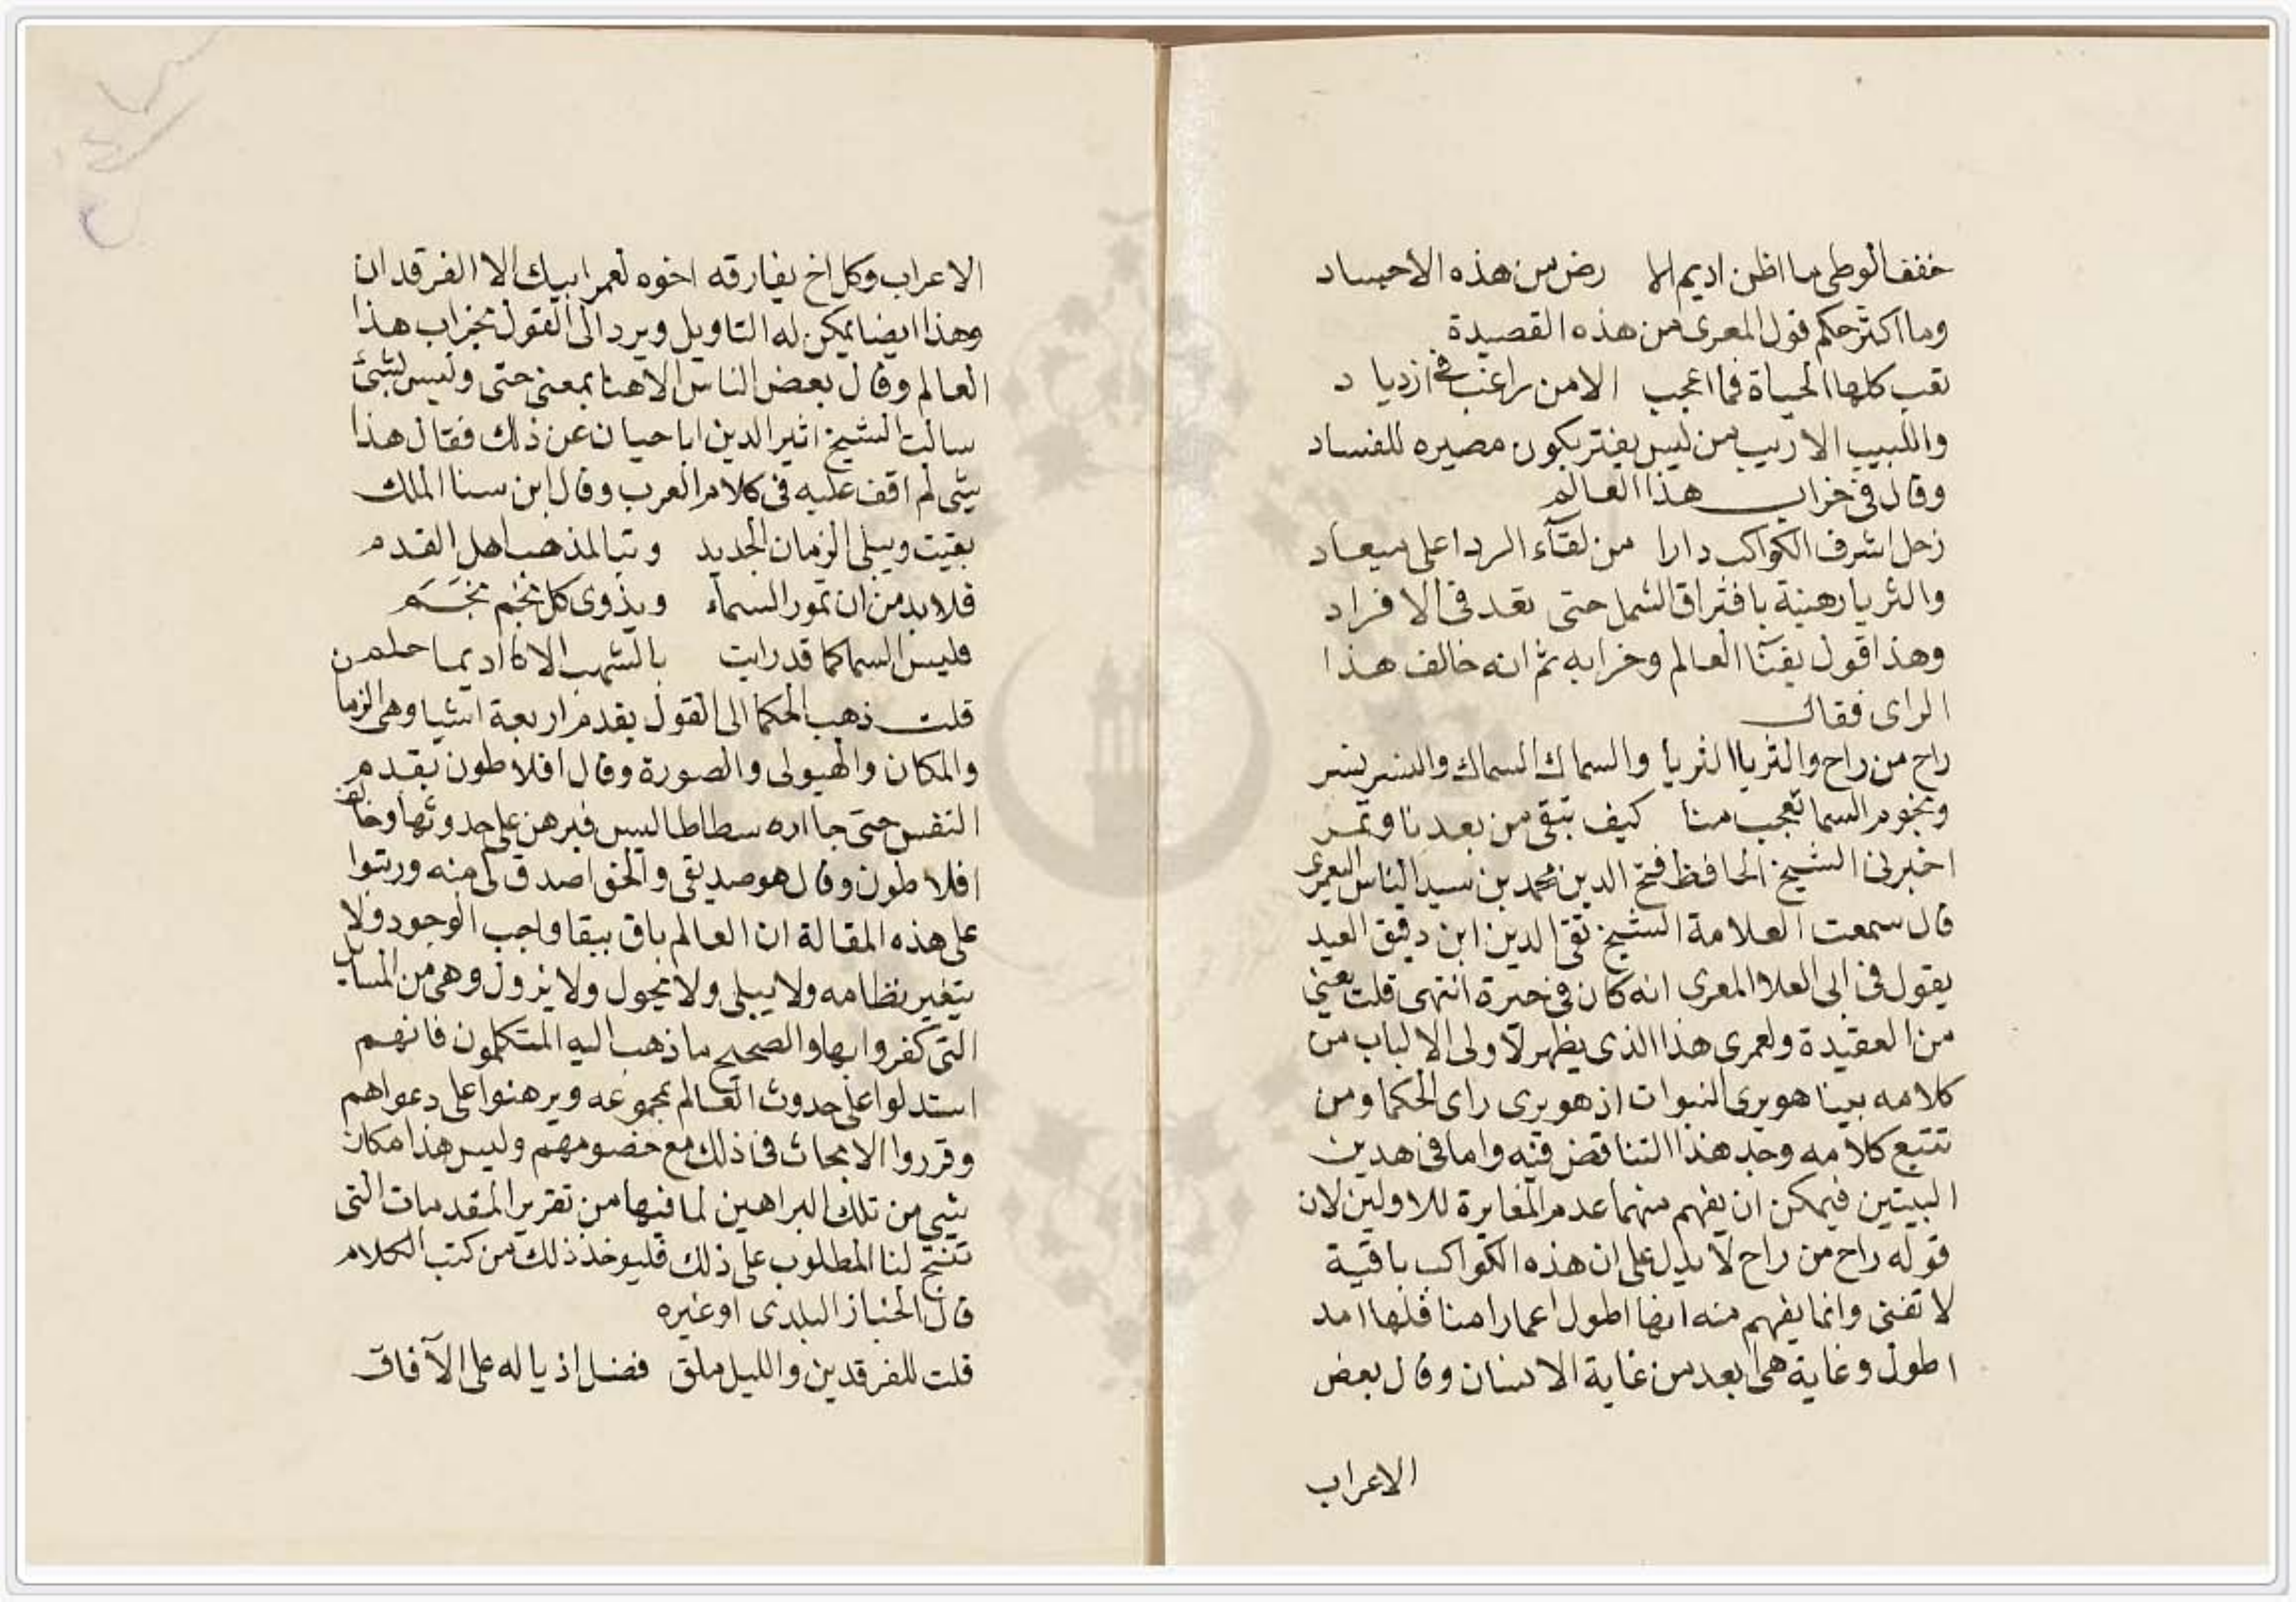 خفف الوطى ما اظن اديم الا رض من هذه الاجساد
وما اكثر حكم قول المعرى من هذه القصيدة
تعب كلها الحياة فما اعجب الا من راغب فى ازدياد
واللبيب الاريب من ليس يغتر بكون مصيره للفساد
وقال فى خراب هذا العالم
زحل اشرف الكواكب دارا من لقآء الردا على ميعاد
والثريا رهينة بافتراق الشمل حتى تعد فى الافراد
وهذا قول بفنآ العالم وخرابه ثم انه خالف هذا
الراى فقال
راح من راح والثريا الثريا والسماك السماك والنسر نسر
ونجوم السما تعجب منا كيف تبقى من بعدنا وتمر
اخبرنى الشيخ الحافظ فتح الدين محمد بن سيد الناس اليعمرى
قال سمعت العلامة الشيخ تقى الدين ابن دقيق العيد
يقول فى ابى العلا المعرى انه كان فى حيرة انتهى قلت يعنى
من العقيدة ولعمرى هذا الذى يظهر لاولى الالباب من
كلامه بينا هو يرى النبوات اذ هو يرى راى الحكما ومن
تتبع كلامه وجد هذا التناقض فيه واما فى هذين
البيتين فيمكن ان يفهم منهما عدم المغايرة للاولين لان
قوله راح من راح لا يدل على ان هذه الكواكب باقية
لا تفنى وانما يفهم منه انها اطول اعمارا منا فلها امد
اطول وغاية هى ابعد من غاية الانسان وقال بعض
الاعراب
الاعراب وكل اخ يفارقه اخوه لعمر ابيك الا الفرقدان
وهذا ايضا يمكن له التاويل ويرد الى القول بخراب هذا
العالم وقال بعض الناس الا هنا بمعنى حتى وليس بشئ
سالت الشيخ اثير الدين ابا حيان عن ذلك فقال هذا
شى لم اقف عليه فى كلام العرب وقال ابن سنا الملك
بقيت ويبلى الزمان الجديد وتبا لمذهب اهل القدم
فلا بد من ان تمور السماء ويذوى كل نجم نجَمَ
فليس السما كما قد رايت بالشهب الا كا اديما حلمن
قلت ذهب الحكما الى القول بقدم اربعة اشيا وهى الزما
والمكان والهيولى والصورة وقال افلاطون بقدم
النفس حتى جا اره سطاطاليس فبرهن على حدوثها وخالف
افلاطون وقال هو صديقى والحق اصدق لى منه ورتبوا
على هذه المقالة ان العالم باق ببقا واجب الوجود ولا
يتغير نظامه ولا يبلى ولا يحول ولا يزول وهى من المسايل
التى كفروا بها والصحيح ما ذهب اليه المتكلمون فانهم
استدلوا على حدوث العالم بمجموعه وبرهنوا على دعواهم
وقرروا الابحاث فى ذلك مع خصومهم وليس هذا مكان
شى من تلك البراهين لما فيها من تقرير المقدمات التى
تنتج لنا المطلوب على ذلك فليوخذ ذلك من كتب الكلام
قال الخباز البلدى او غيره
قلت للفرقدين والليل ملق فضل اذياله على الآفاق